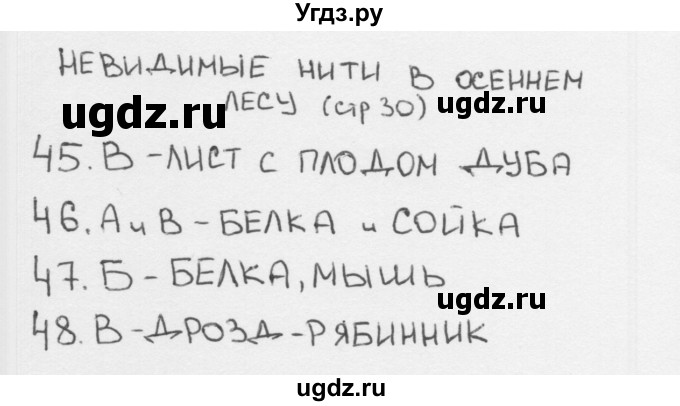 Угдз.ру
НЕВИДИМЫЕ НИТИ В ОСЕННЕМ
ЛЕСУ (стр 30)
ugdz.ru
ugdz.ru
45. В - ЛИСТ С ПЛОДОМ ДУБА
46. А и В - БЕЛКА и СОЙКА
47. Б - БЕЛКА, МЫШЬ
ugdz.ru
48. В - ДРОЗД - РЯБИННИК
ugdz.ru